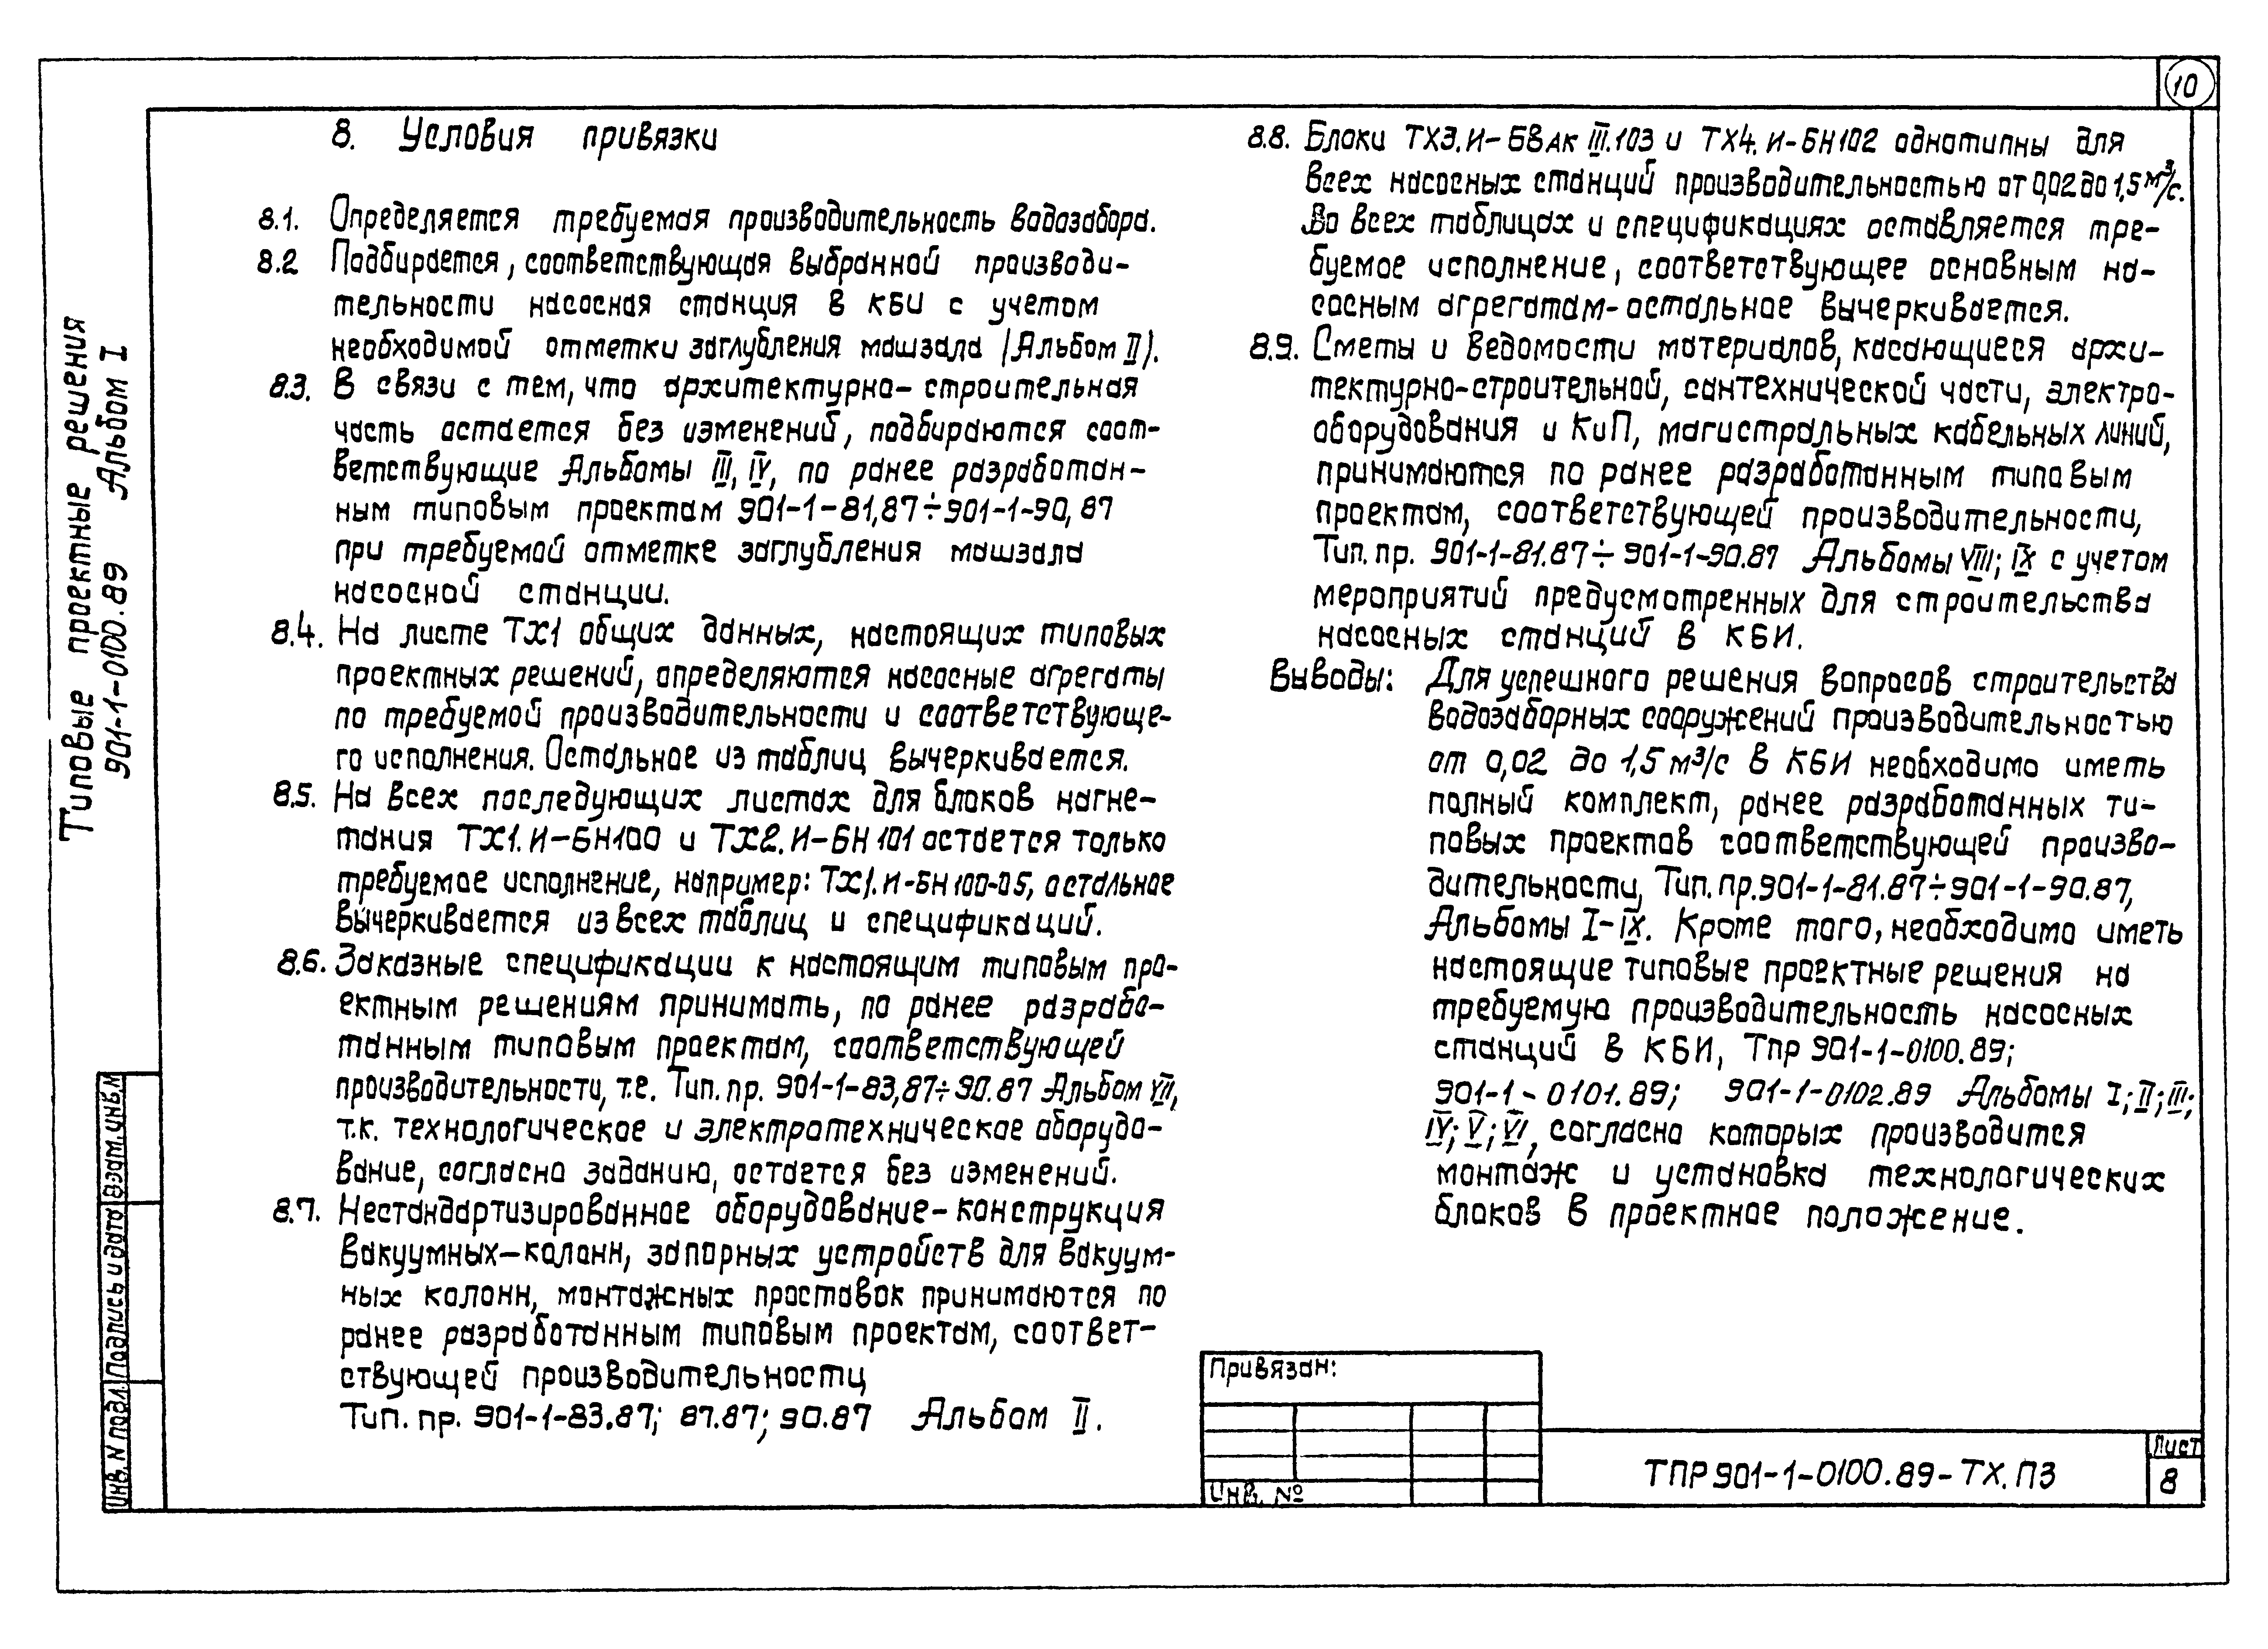 10
Типовые проектные решения
901-1-0100.89 Альбом I
8. Условия привязки
8.1. Определяется требуемая производительность водозабора.
8.2 Подбирается, соответствующая выбранной производи-
тельности насосная станция в КБИ с учетом
необходимой отметки заглубления машзала (Альбом II).
8.3. В связи с тем, что архитектурно-строительная
часть остается без изменений, подбираются соот-
ветствующие Альбомы III, IV, по ранее разработан-
ным типовым проектам 901-1-81,87÷901-1-90,87
при требуемой отметке заглубления машзала
насосной станции.
8.4. На листе ТХ1 общих данных, настоящих типовых
проектных решений, определяются насосные агрегаты
по требуемой производительности и соответствующе-
го исполнения. Остальное из таблиц вычеркивается.
8.5. На всех последующих листах для блоков нагне-
тания ТХ1.И-БН100 и ТХ2.И-БН101 остается только
требуемое исполнение, например: ТХ1.И-БН100-05, остальное
вычеркивается из всех таблиц и спецификаций.
8.6. Заказные спецификации к настоящим типовым про-
ектным решениям принимать, по ранее разрабо-
танным типовым проектам, соответствующей
производительности, т.е. Тип. пр. 901-1-83,87÷90.87 Альбом VII,
т.к. технологическое и электротехническое оборудо-
вание, согласно заданию, остается без изменений.
8.7. Нестандартизированное оборудование-конструкция
вакуумных-колонн, запорных устройств для вакуум-
ных колонн, монтажных проставок принимаются по
ранее разработанным типовым проектам, соответ-
ствующей производительности
Тип. пр. 901-1-83.87; 87.87; 90.87 Альбом II.
8.8. Блоки ТХ3.И-БВАК III.103 и ТХ4.И-БН102 однотипны для
всех насосных станций производительностью от 0,02 до 1,5 м³/с.
Во всех таблицах и спецификациях оставляется тре-
буемое исполнение, соответствующее основным на-
сосным агрегатам-остальное вычеркивается.
8.9. Сметы и ведомости материалов, касающиеся архи-
тектурно-строительной, сантехнической части, электро-
оборудования и КиП, магистральных кабельных линий,
принимаются по ранее разработанным типовым
проектам, соответствующей производительности,
Тип. пр. 901-1-81.87÷901-1-90.87 Альбомы VIII; IX с учетом
мероприятий предусмотренных для строительства
насосных станций в КБИ.
Выводы: Для успешного решения вопросов строительства
водозаборных сооружений производительностью
от 0,02 до 1,5 м³/с в КБИ необходимо иметь
полный комплект, ранее разработанных ти-
повых проектов соответствующей произво-
дительности, Тип. пр. 901-1-81.87÷901-1-90.87,
Альбомы I-IX. Кроме того, необходимо иметь
настоящие типовые проектные решения на
требуемую производительность насосных
станций в КБИ, Тпр 901-1-0100.89;
901-1-0101.89; 901-1-0102.89 Альбомы I; II; III;
IV; V; VI, согласно которых производится
монтаж и установка технологических
блоков в проектное положение.
Взам. инв. N
Подпись и дата
Инв. N подл.
Привязан:
Инв. №
ТПР 901-1-0100.89-ТХ.ПЗ
Лист
8